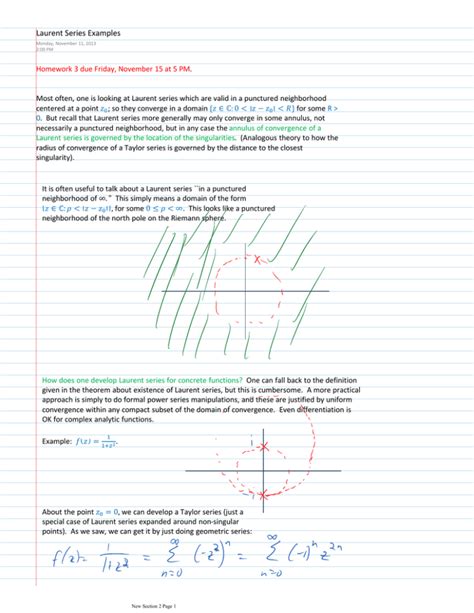 Laurent Series Examples
Monday, November 11, 2013
2:00 PM
Homework 3 due Friday, November 15 at 5 PM.
Most often, one is looking at Laurent series which are valid in a punctured neighborhood
centered at a point z₀; so they converge in a domain {z ∈ ℂ: 0 < |z − z₀| < R} for some R >
0. But recall that Laurent series more generally may only converge in some annulus, not
necessarily a punctured neighborhood, but in any case the annulus of convergence of a
Laurent series is governed by the location of the singularities. (Analogous theory to how the
radius of convergence of a Taylor series is governed by the distance to the closest
singularity).
It is often useful to talk about a Laurent series ``in a punctured
neighborhood of ∞." This simply means a domain of the form
{z ∈ ℂ: ρ < |z − z₀|}, for some 0 ≤ ρ < ∞. This looks like a punctured
neighborhood of the north pole on the Riemann sphere.
How does one develop Laurent series for concrete functions? One can fall back to the definition
given in the theorem about existence of Laurent series, but this is cumbersome. A more practical
approach is simply to do formal power series manipulations, and these are justified by uniform
convergence within any compact subset of the domain of convergence. Even differentiation is
OK for complex analytic functions.
Example: f(z) = 1/(1+z²).
i
About the point z₀ = 0, we can develop a Taylor series (just a
special case of Laurent series expanded around non-singular
points). As we saw, we can get it by just doing geometric series:
f(z) = 1/(1+z²) = ∑_{n=0}^{∞} (−z²)ⁿ = ∑_{n=0}^{∞} (−1)ⁿ z²ⁿ
New Section 2 Page 1